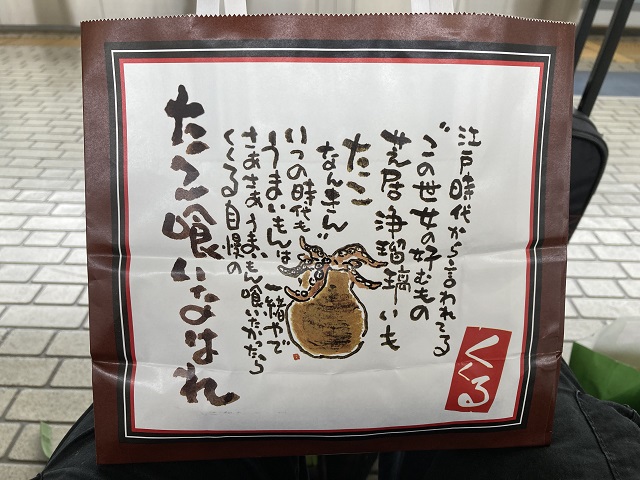 江戸時代から言われてる
“この世女の好むもの
芝居浄瑠璃いも
たこ
なんきん”
いつの時代も
うまいもんは一緒やで
さあさぁうまいもん喰いたかったら
くくる自慢の
たこ喰いなはれ
くくる